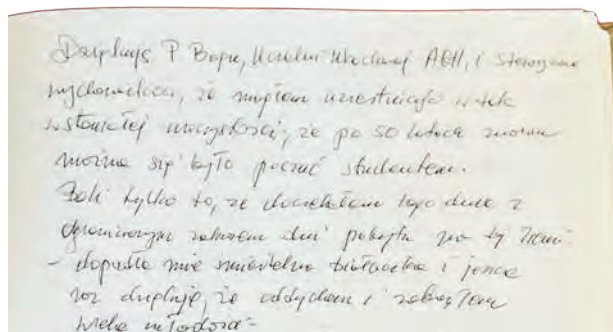 Dziękuję P. Bogu, Uczelni Kochanej AGH, i Stowarzyszeniu
Wychowanków, że mogłem uczestniczyć w tak
wspaniałej uroczystości, że po 50 latach znowu
można się było poczuć studentem.
Boli tylko to, że doczekałem tego dnia z
ograniczonym zakresem dni pobytu na tej ziemi
- dopadła mnie śmiertelna białaczka i jeszcze
raz dziękuję, że oddycham i